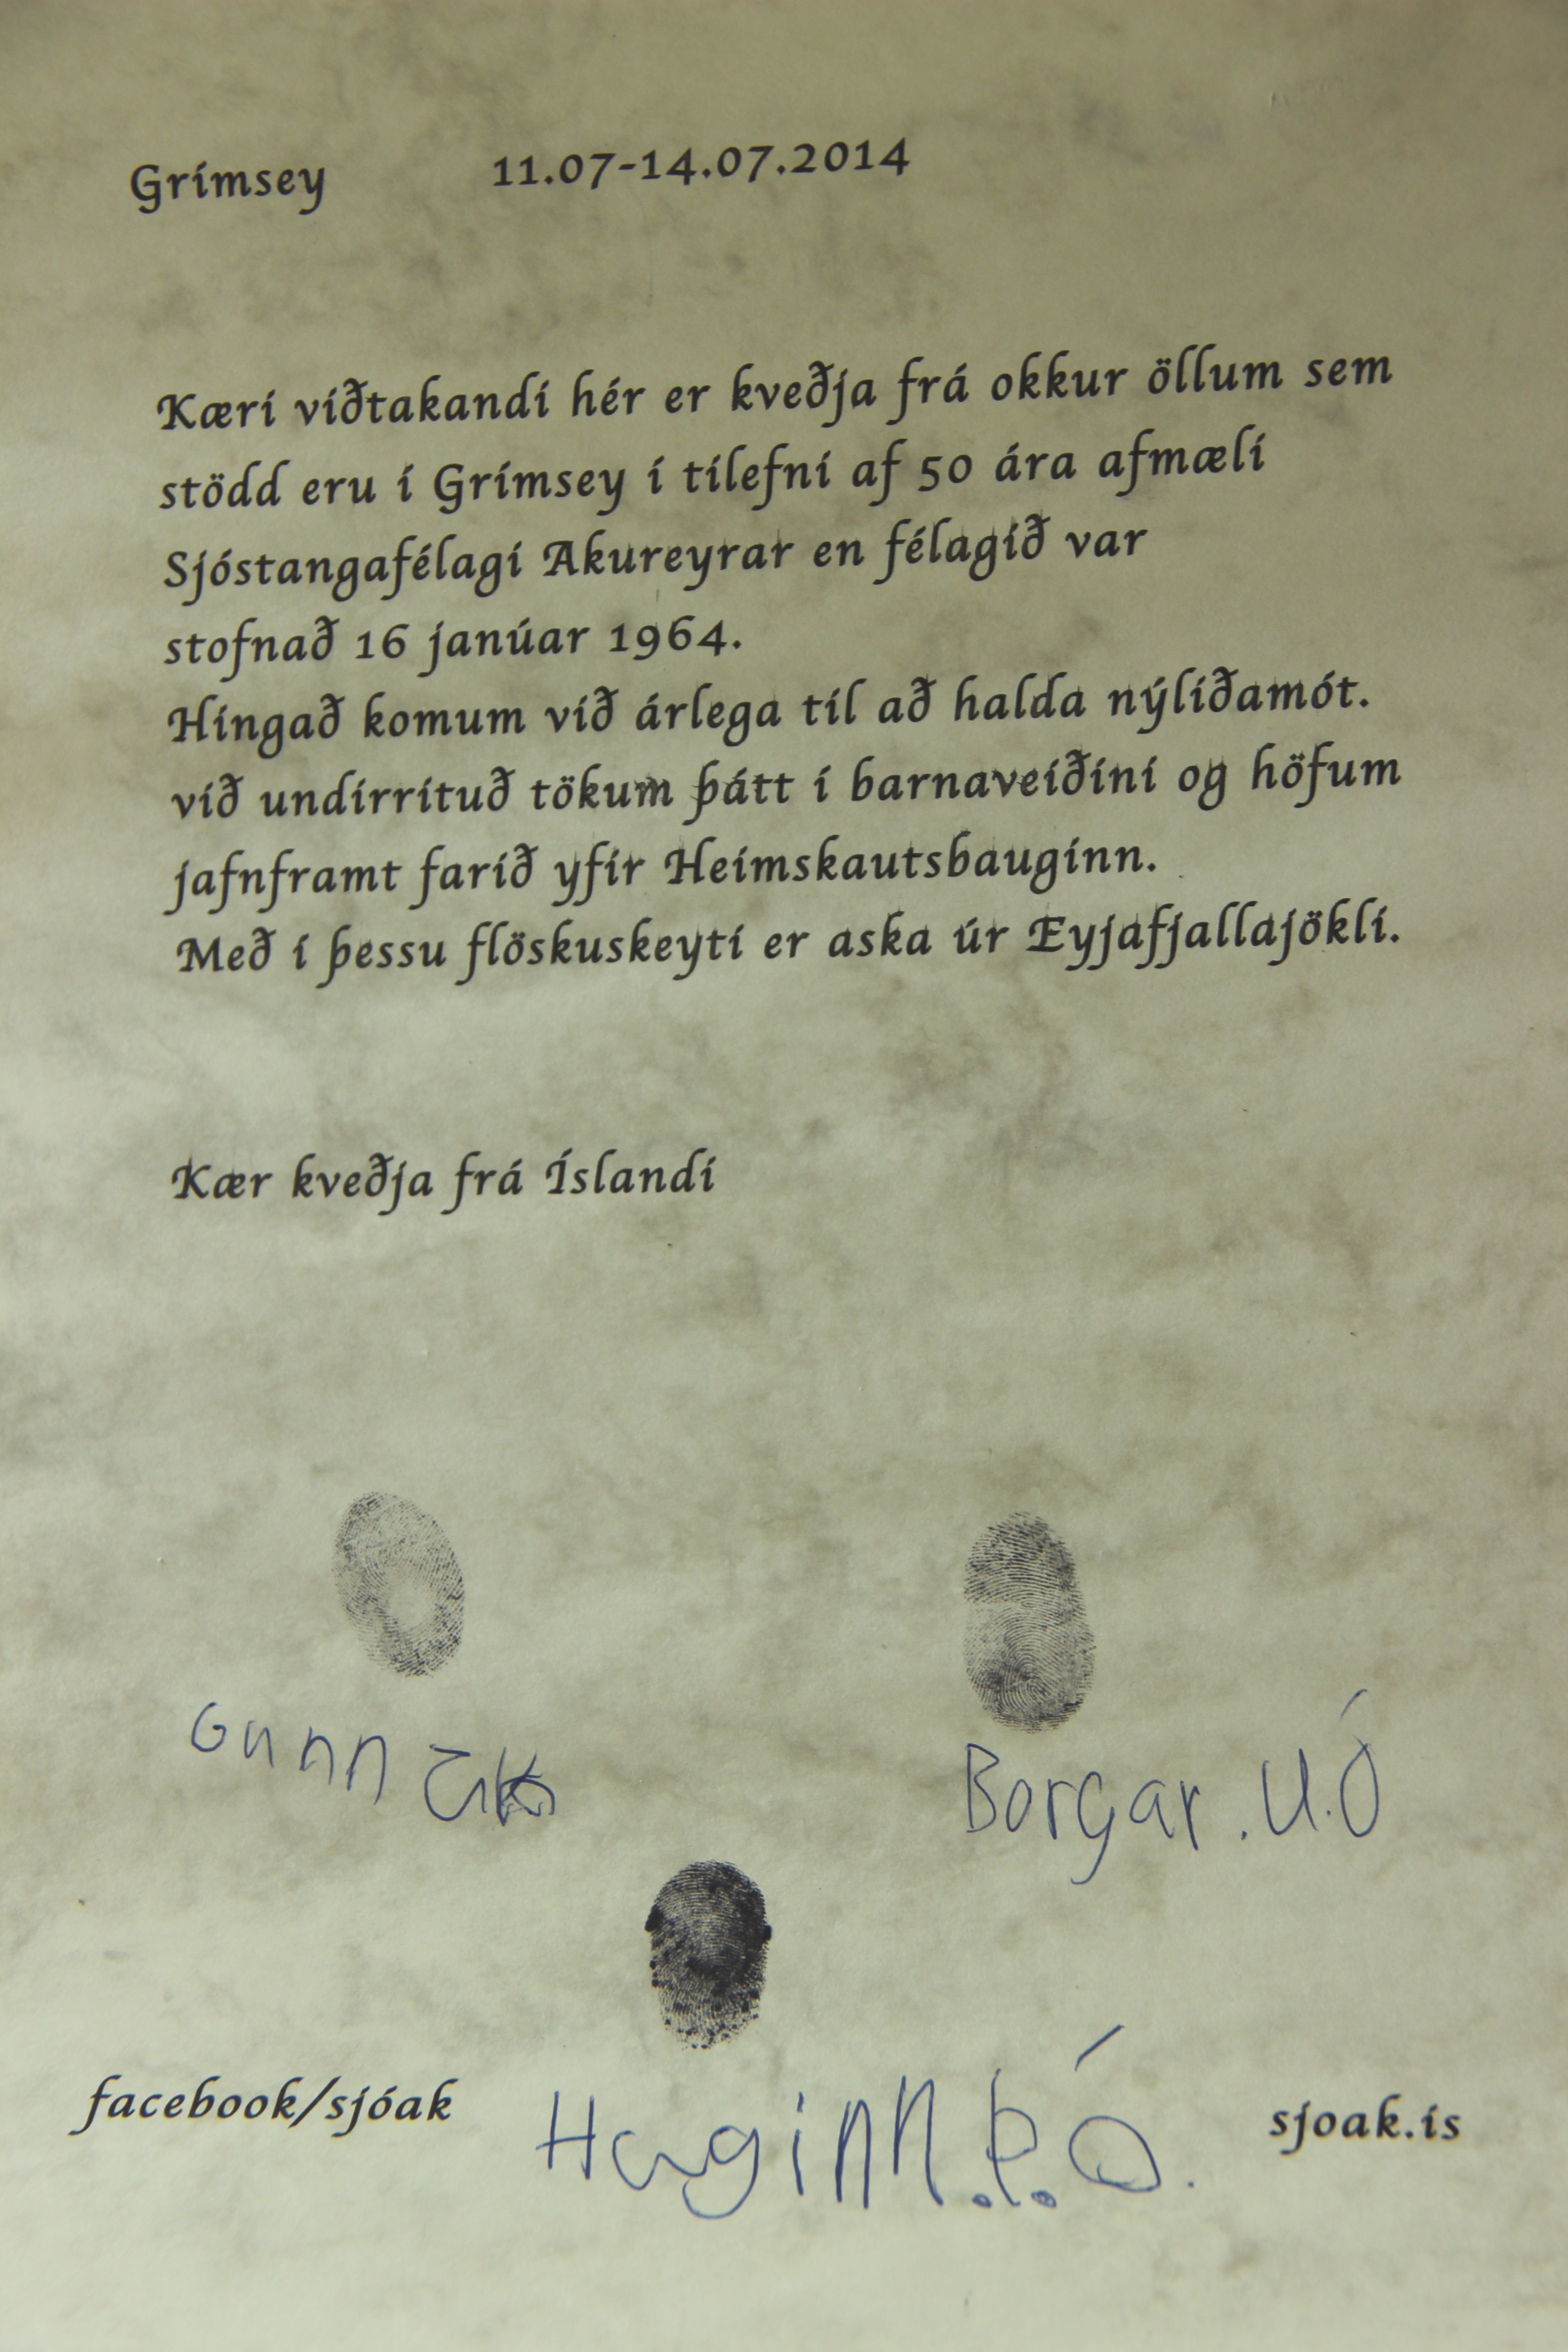 Grímsey 11.07-14.07.2014
Kæri viðtakandi hér er kveðja frá okkur öllum sem
stödd eru í Grímsey í tilefni af 50 ára afmæli
Sjóstangafélagi Akureyrar en félagið var
stofnað 16 janúar 1964.
Hingað komum við árlega til að halda nýliðamót.
við undirrituð tökum þátt í barnaveiðini og höfum
jafnframt farið yfir Heimskautsbauginn.
Með í þessu flöskuskeyti er aska úr Eyjafjallajökli.
Kær kveðja frá Íslandi
Borgar.U.Ó
facebook/sjóak
Huginn.Þ.Ó.
sjoak.is